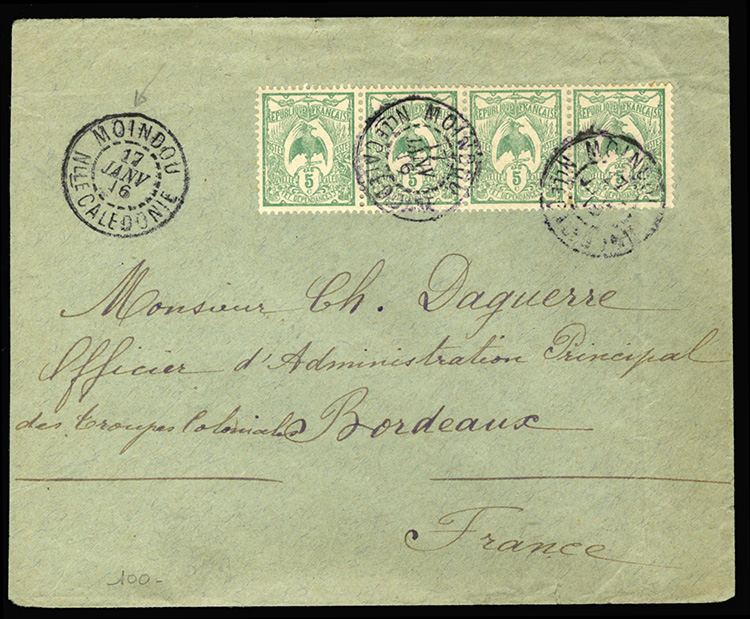 MOINDOU
17
JANV
16
NLLE CALEDONIE
REPUBLIQUE FRANÇAISE REPUBLIQUE FRANÇAISE REPUBLIQUE FRANÇAISE REPUBLIQUE FRANÇAISE
5 5 5
MOINDOU
17
JANV
16
NLLE CALEDONIE
MOINDOU
Monsieur Ch. Daguerre
Officier d'Administration Principal
des troupes Coloniales Bordeaux
France
100-